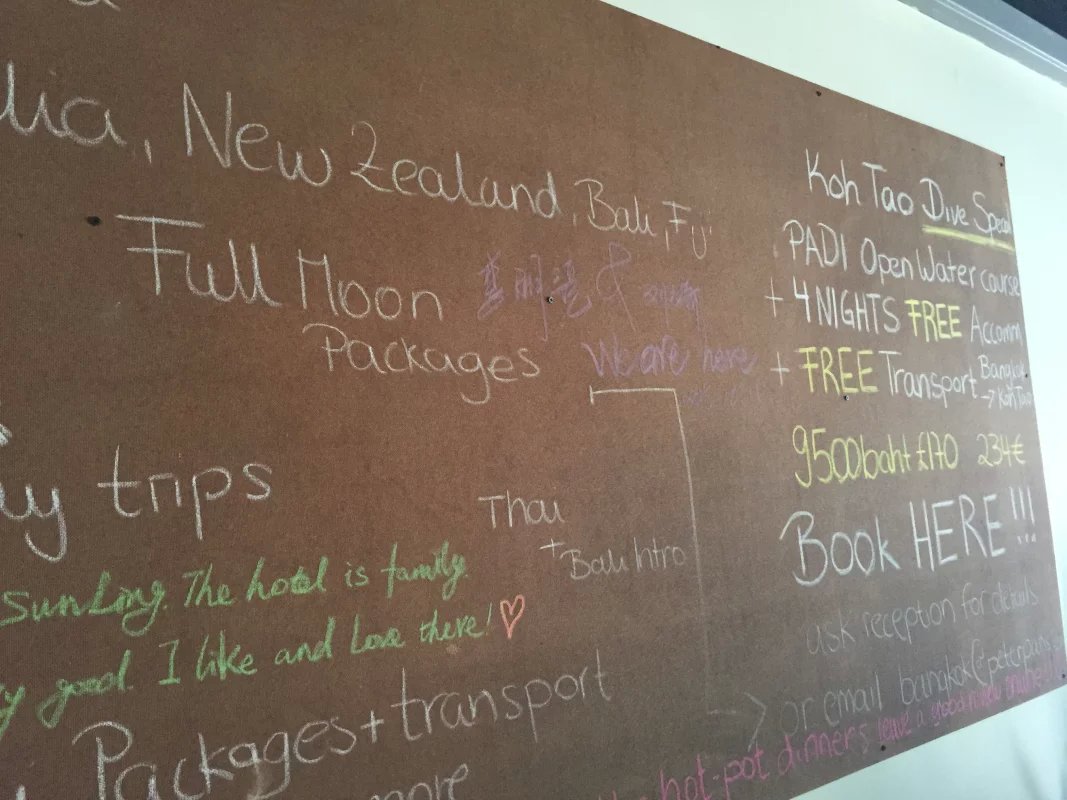 lia, New Zealand, Bali, Fiji
Full Moon
Packages
We are here
y trips
Thai
+
Bali Intro
SunLing. The hotel is family.
good. I like and Love there!
Packages + transport
more
Koh Tao Dive Special
PADI Open Water course
+ 4 NIGHTS FREE Accomm
+ FREE Transport Bangkok
→ Koh Tao
9500baht £170 234€
Book HERE!!!
ask reception for details
→ or email bangkok@peterpans
hot-pot dinners leave a good